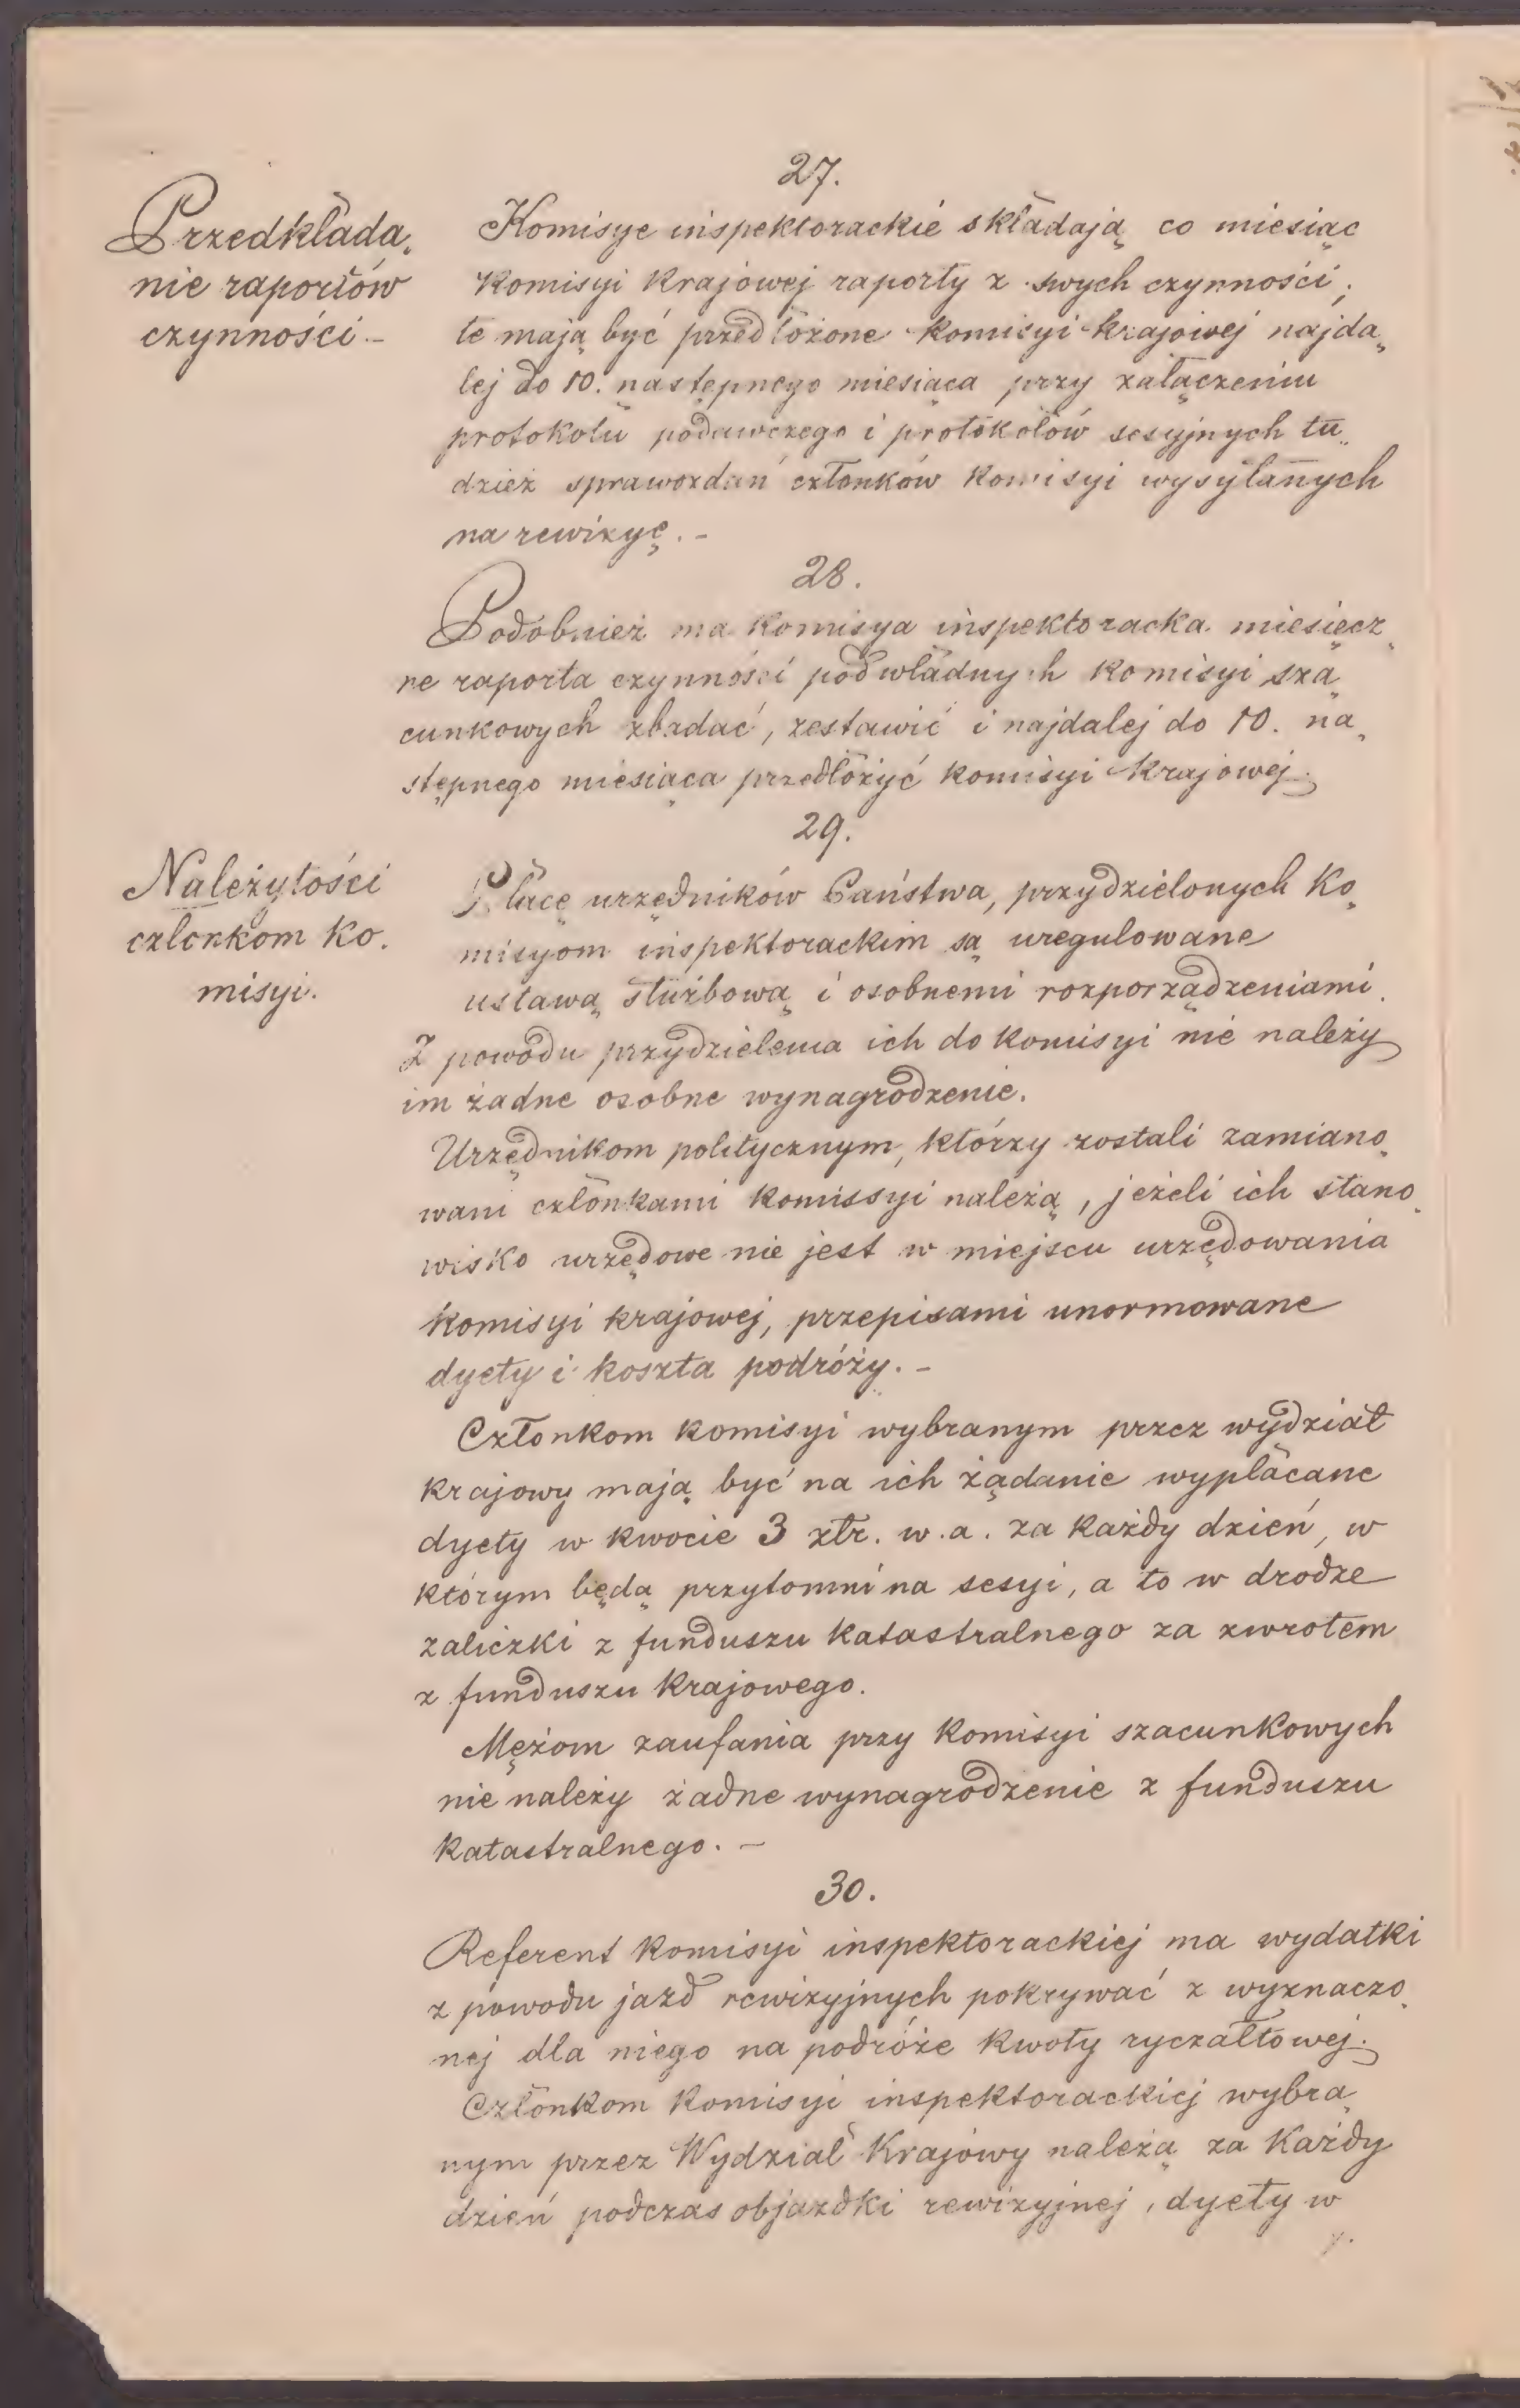 27.
Przedkłada„
nie raportów
czynności. –
Komisye inspektorackie składają co miesiąc
Komisyi Krajowej raporty z swych czynności;
te mają być przedłożone Komisyi krajowej najda„
lej do 10. następnego miesiąca przy załączeniu
protokołu podawczego i protokołów sesyjnych tu„
dzież sprawozdań członków Komisyi wysyłanych
na rewizyę. –
28.
Podobnież ma Komisya inspektoracka miesięcz„
ne raporta czynności podwładnych Komisyi sza„
cunkowych zbadać, zestawić i najdalej do 10. na„
stępnego miesiąca przedłożyć Komisyi Krajowej.
29.
Należytości
członkom Ko.
misyi.
Płace urzędników Państwa, przydzielonych Ko„
misyom inspektorackim są uregulowane
ustawą służbową i osobnemi rozporządzeniami.
Z powodu przydzielenia ich do Komisyi nie należy
im żadne osobne wynagrodzenie.
Urzędnikom politycznym, którzy zostali zamiano„
wani członkami Komissyi należą, jeżeli ich stano„
wisko urzędowe nie jest w miejscu urzędowania
Komisyi krajowej, przepisami unormowane
dyety i koszta podróży. –
Członkom Komisyi wybranym przez wydział
Krajowy mają być na ich żądanie wypłacane
dyety w kwocie 3 złr. w. a. za każdy dzień, w
którym będą przytomni na sesyi, a to w drodze
zaliczki z funduszu Katastralnego za zwrotem
z funduszu Krajowego.
Mężom zaufania przy Komisyi szacunkowych
nie należy żadne wynagrodzenie z funduszu
Katastralnego. –
30.
Referent Komisyi inspektorackiej ma wydatki
z powodu jazd rewizyjnych pokrywać z wyznaczo„
nej dla niego na podróże Kwoty ryczałtowej.
Członkom Komisyi inspektorackiej wybra„
nym przez Wydział Krajowy należą za Każdy
dzień podczas objazdki rewizyjnej, dyety w